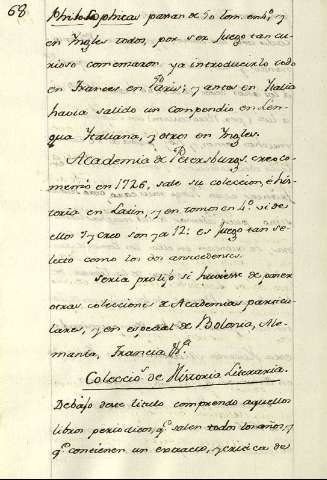 68
Philosophicas pasan de 50 tom. en 4º, y
en Yngles todos, por ser juego tan cu-
rioso comenzaron ya introducirlo todo
en Frances en Paris; y antes en Italia
havia salido un Compendio en Len-
gua Ytaliana, y otros en Yngles.
Academia de Petersburg. creo co-
menzó en 1726, sale su coleccion, é his-
toria en Latin, y en tomos en 4º vi de
ellos 7 y creo son ya 12: es juego tan se-
lecto como los dos antecedentes.
Seria prolijo si huviesse de poner
otras colecciones de Academias particu-
lares, y en especial de Bolonia, Ale-
mania, Francia &ª.
Coleccioˢ. de Historia Literaria.
Debajo de este titulo comprendo aquellos
libros periodicos, qº salen todos los años, y
qº contienen un extracto, y critica de